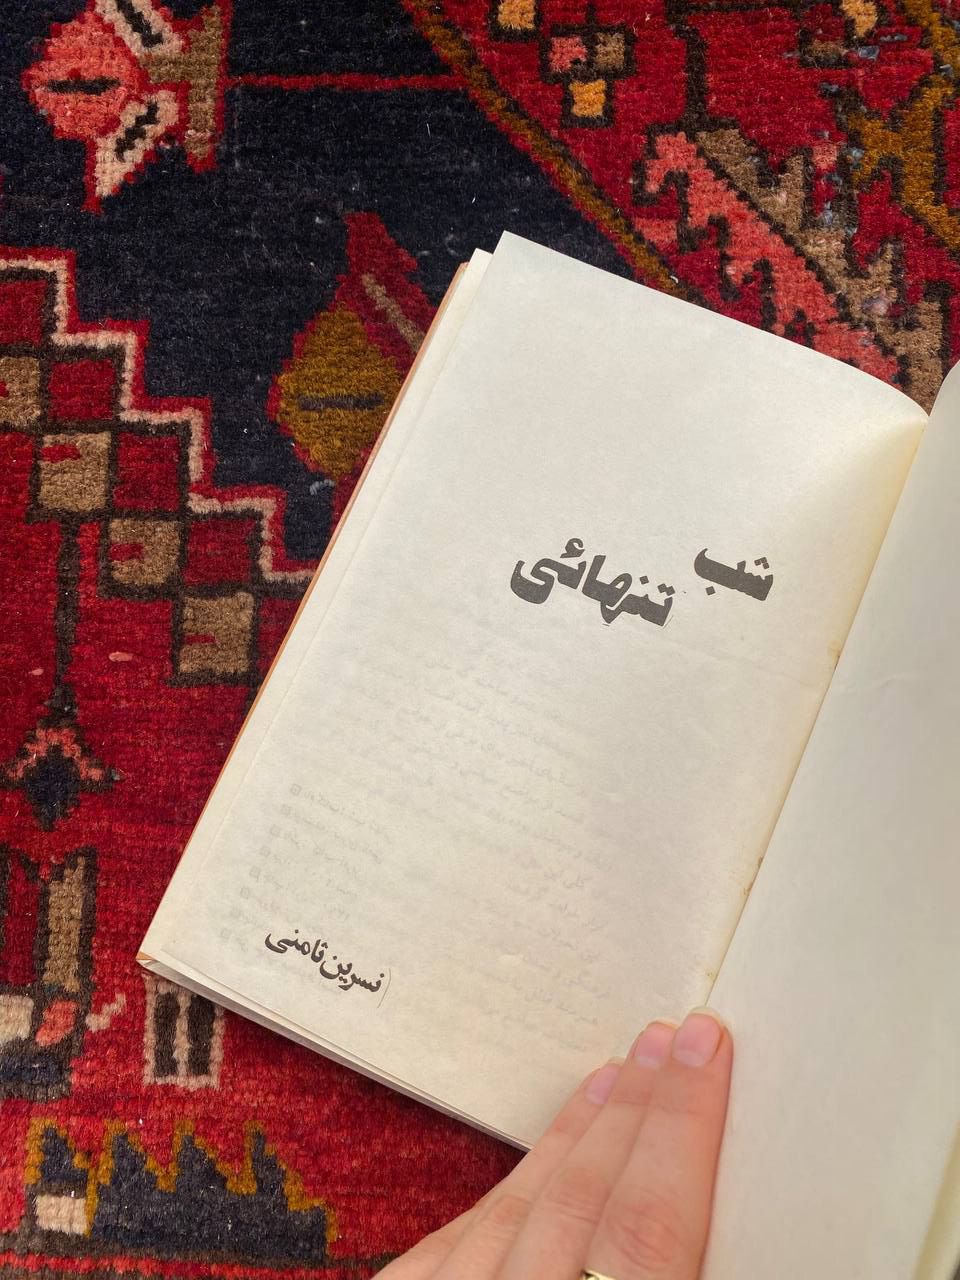 شب
تنهائی
نسرین ثامنی